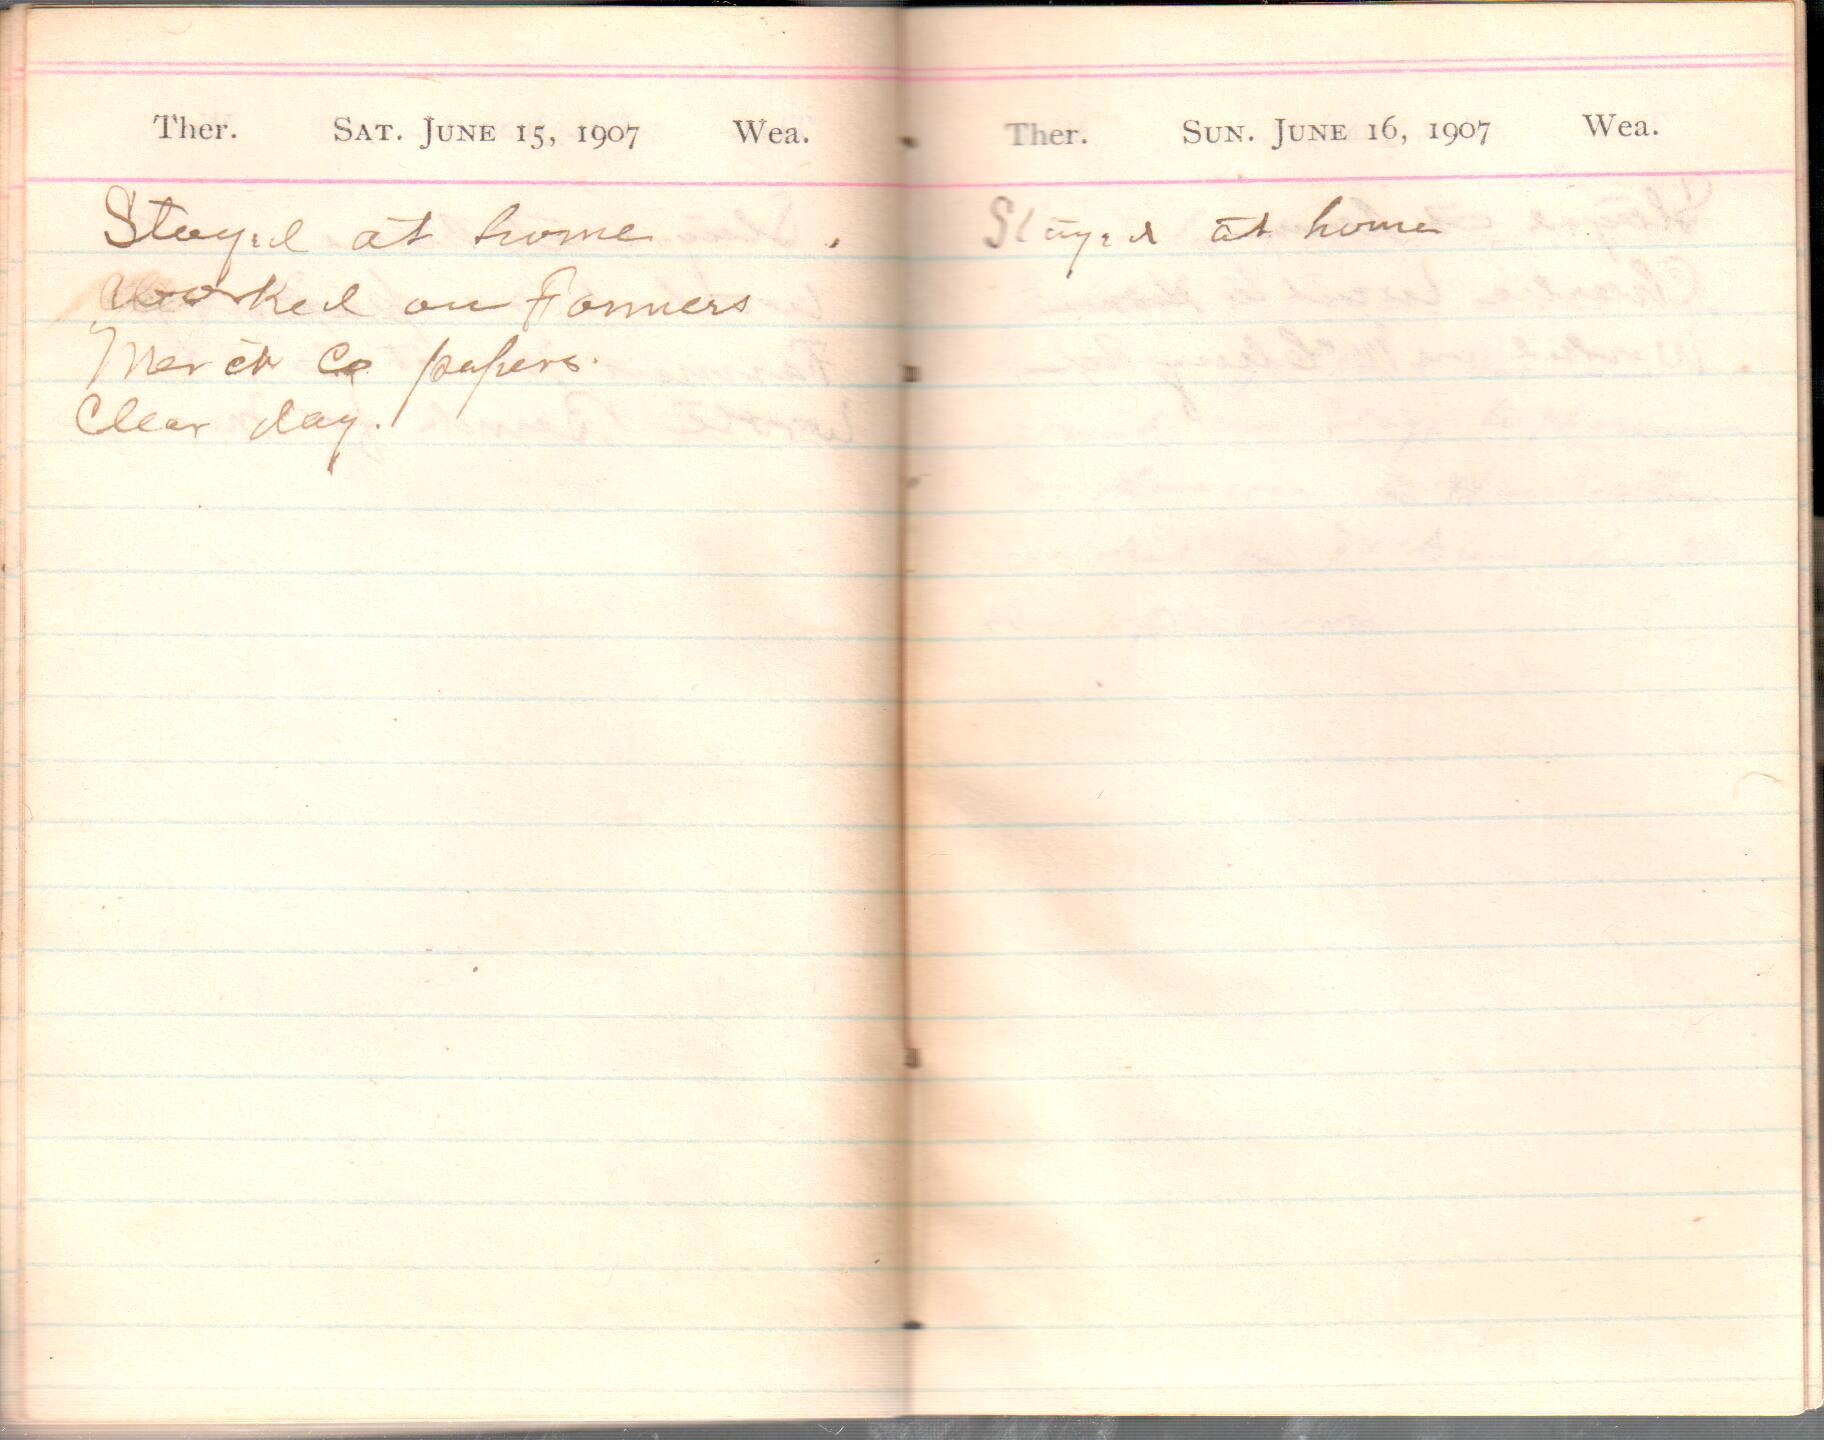 Ther. Sat. June 15, 1907 Wea.
Stayed at home
Worked on Farmers
Merch Co papers.
Clear day.
Ther. Sun. June 16, 1907 Wea.
Stayed at home